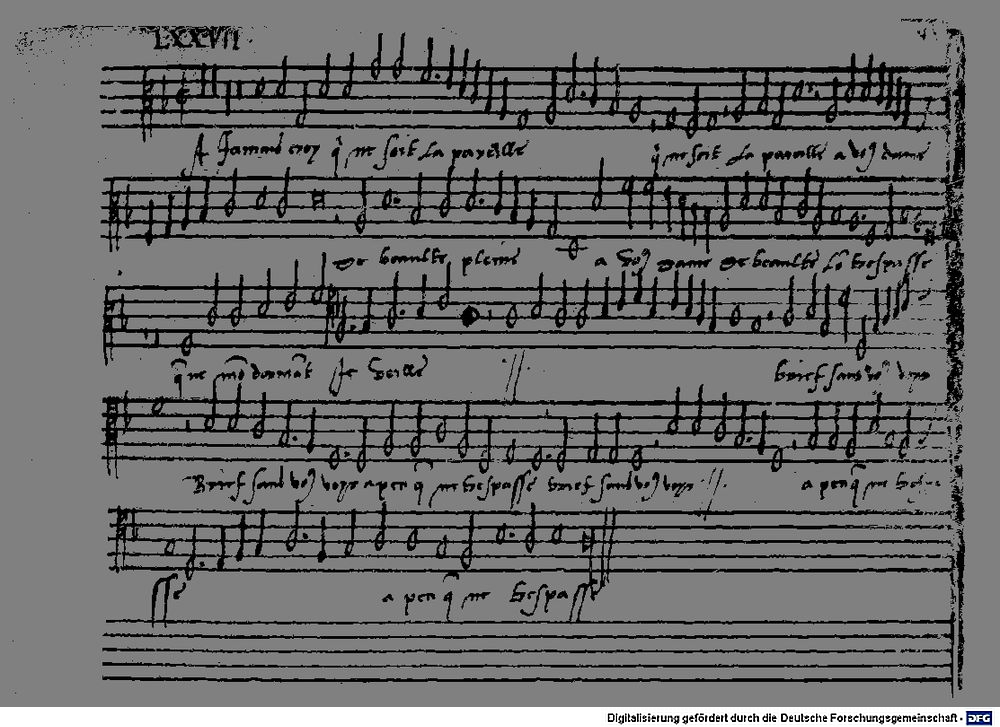 LXXVII
A Jamais croy q̄ ne soit La pareille q̄ ne soit La pareille a voꝯ dame
De beaulte pleine a voꝯ dame de beaulte Je trespasse
q̄ ne dormāt Je veille brief sans voꝯ voyr
Brief sans voꝯ voyr a peu q̄ ne trespasse brief sans voꝯ voyr a peu q̄ ne
sse a peu q̄ ne trespasse
Digitalisierung gefördert durch die Deutsche Forschungsgemeinschaft - DFG